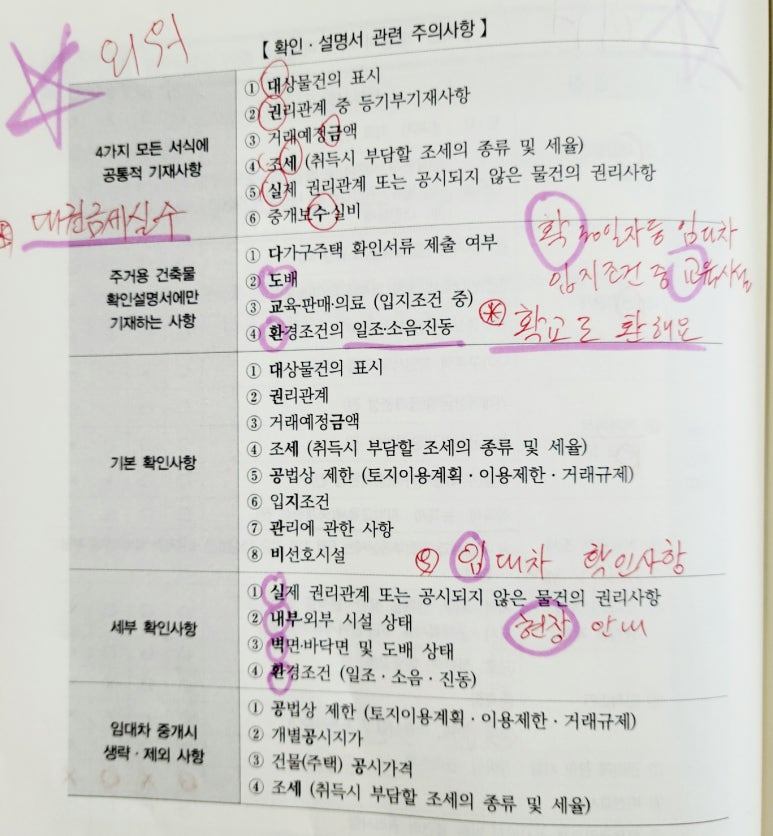 외워
【 확인 · 설명서 관련 주의사항 】
4가지 모든 서식에
공통적 기재사항
① 대상물건의 표시
② 권리관계 중 등기부기재사항
③ 거래예정금액
④ 조세 (취득시 부담할 조세의 종류 및 세율)
⑤ 실제 권리관계 또는 공시되지 않은 물건의 권리사항
⑥ 중개보수·실비
대권금세실수
주거용 건축물
확인설명서에만
기재하는 사항
① 다가구주택 확인서류 제출 여부
② 도배
③ 교육·판매·의료 (입지조건 중)
④ 환경조건의 일조·소음·진동
확 임대차
입지조건 중 교육시설
확교도 환해요
기본 확인사항
① 대상물건의 표시
② 권리관계
③ 거래예정금액
④ 조세 (취득시 부담할 조세의 종류 및 세율)
⑤ 공법상 제한 (토지이용계획 · 이용제한 · 거래규제)
⑥ 입지조건
⑦ 관리에 관한 사항
⑧ 비선호시설
⑨ 임대차 확인사항
세부 확인사항
① 실제 권리관계 또는 공시되지 않은 물건의 권리사항
② 내부·외부 시설 상태
③ 벽면·바닥면 및 도배 상태
④ 환경조건 (일조 · 소음 · 진동)
현장 안내
임대차 중개시
생략 · 제외 사항
① 공법상 제한 (토지이용계획 · 이용제한 · 거래규제)
② 개별공시지가
③ 건물(주택) 공시가격
④ 조세 (취득시 부담할 조세의 종류 및 세율)